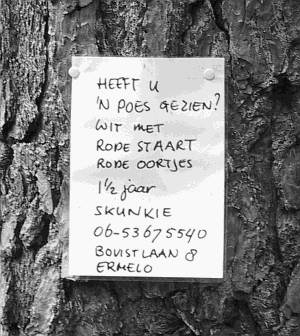 HEEFT U
'N POES GEZIEN?
WIT MET
RODE STAART
RODE OORTJES
1½ jaar
SKUNKIE
06-53675540
BOVISTLAAN 8
ERMELO